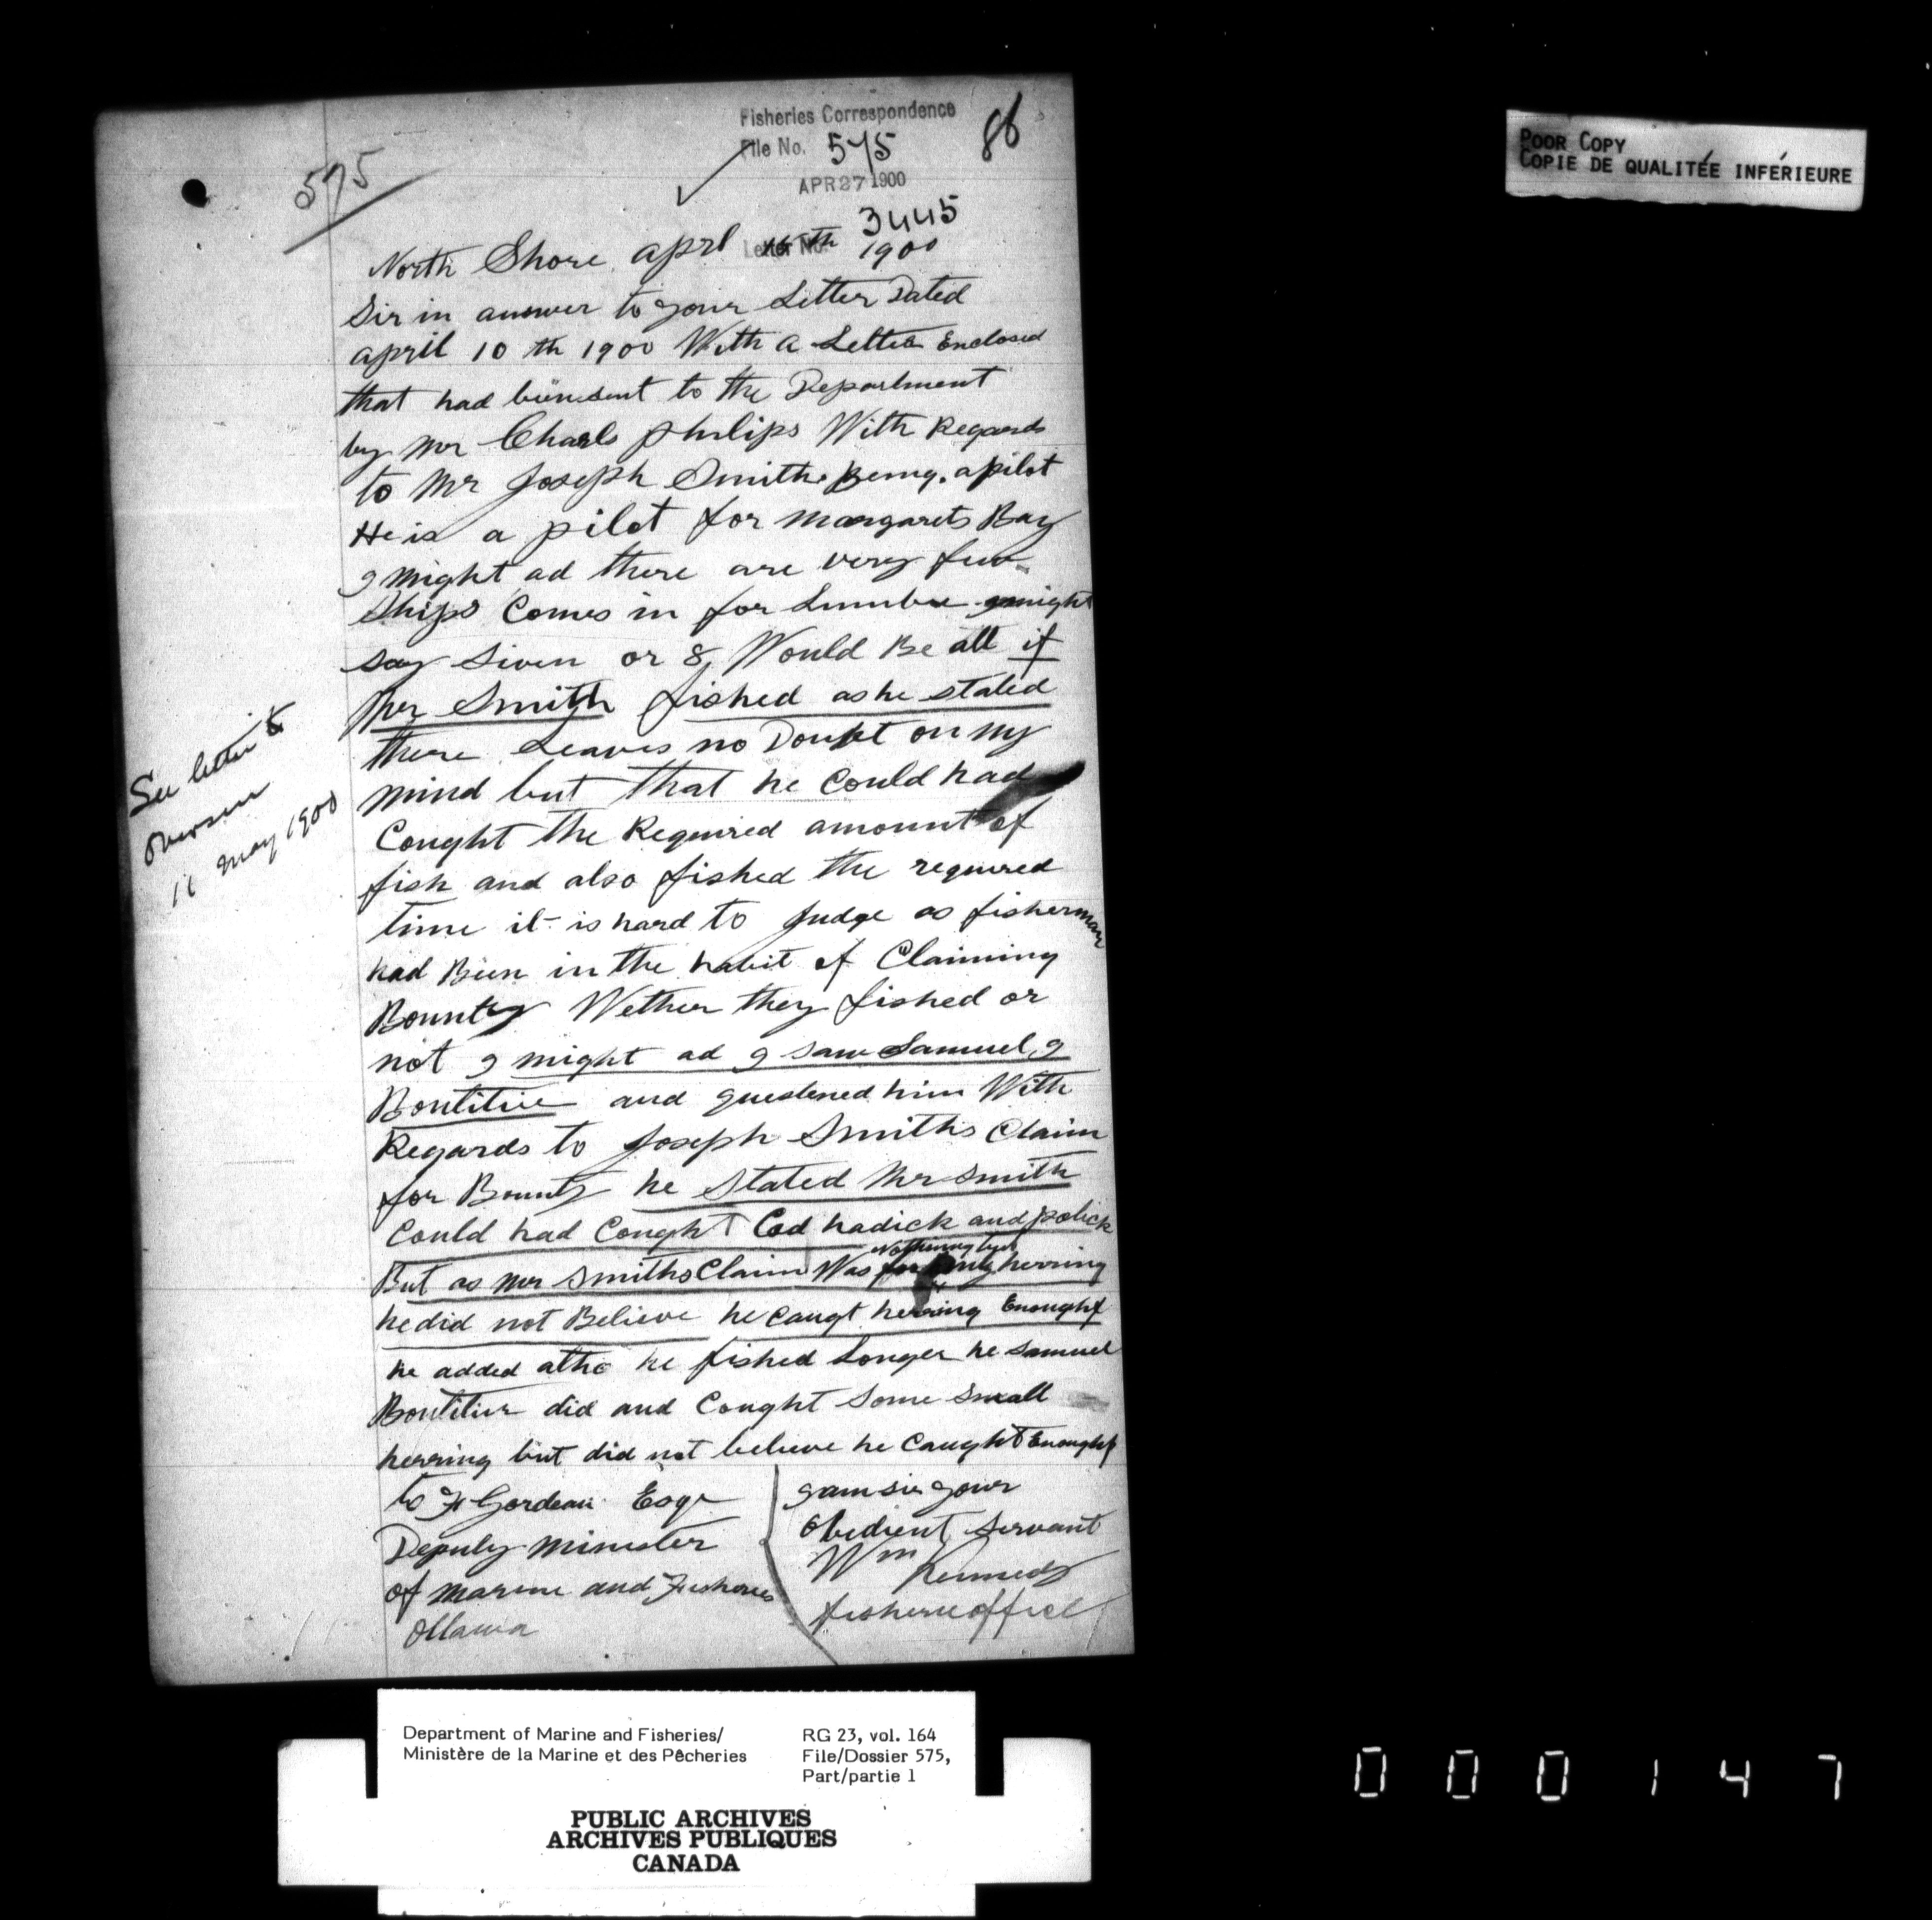 Fisheries Correspondence
File No. 575
86
APR 27 1900
575
Letter No. 3445
North Shore aprl 1900
Sir in answer to your Letter Dated
april 10 th 1900 With a Letter Enclosed
that had been sent to the Department
by Mr Charls philips With Regards
to Mr Joseph Smith Being a pilot
He is a pilot for margarets Bay
I might ad there are very few
Ships Comes in for Lumber I might
say Seven or 8, Would Be all if
Mr Smith fished as he stated
there Leaves no Doubt on my
mind but that he Could had
Cought the Required amount of
fish and also fished the required
time it is hard to Judge as fisherman
had Been in the habit of Claiming
Bounty Wether they fished or
not I might ad I saw Samuel J
Boutilier and questened him With
Regards to Joseph Smiths Claim
for Bounty he Stated Mr Smith
Could had Cought Cod hadick and polick
But as Mr Smiths Claim Was Nothing but herring
he did not Believe he Caugt herring Enought
he added altho he fished Longer he Samuel
Boutilier did and Cought Some Small
herring but did not believe he Caught Enought
See letter to
Overseer
11 May 1900
to F Gordeau Esqr
Deputy Minister
of marine and Fisheries
Ottawa
I am sir your
obedient Servant
Wm Kennedy
fisherie officer
POOR COPY
COPIE DE QUALITÉE INFÉRIEURE
Department of Marine and Fisheries/
Ministère de la Marine et des Pêcheries
RG 23, vol. 164
File/Dossier 575,
Part/partie 1
PUBLIC ARCHIVES
ARCHIVES PUBLIQUES
CANADA
000147